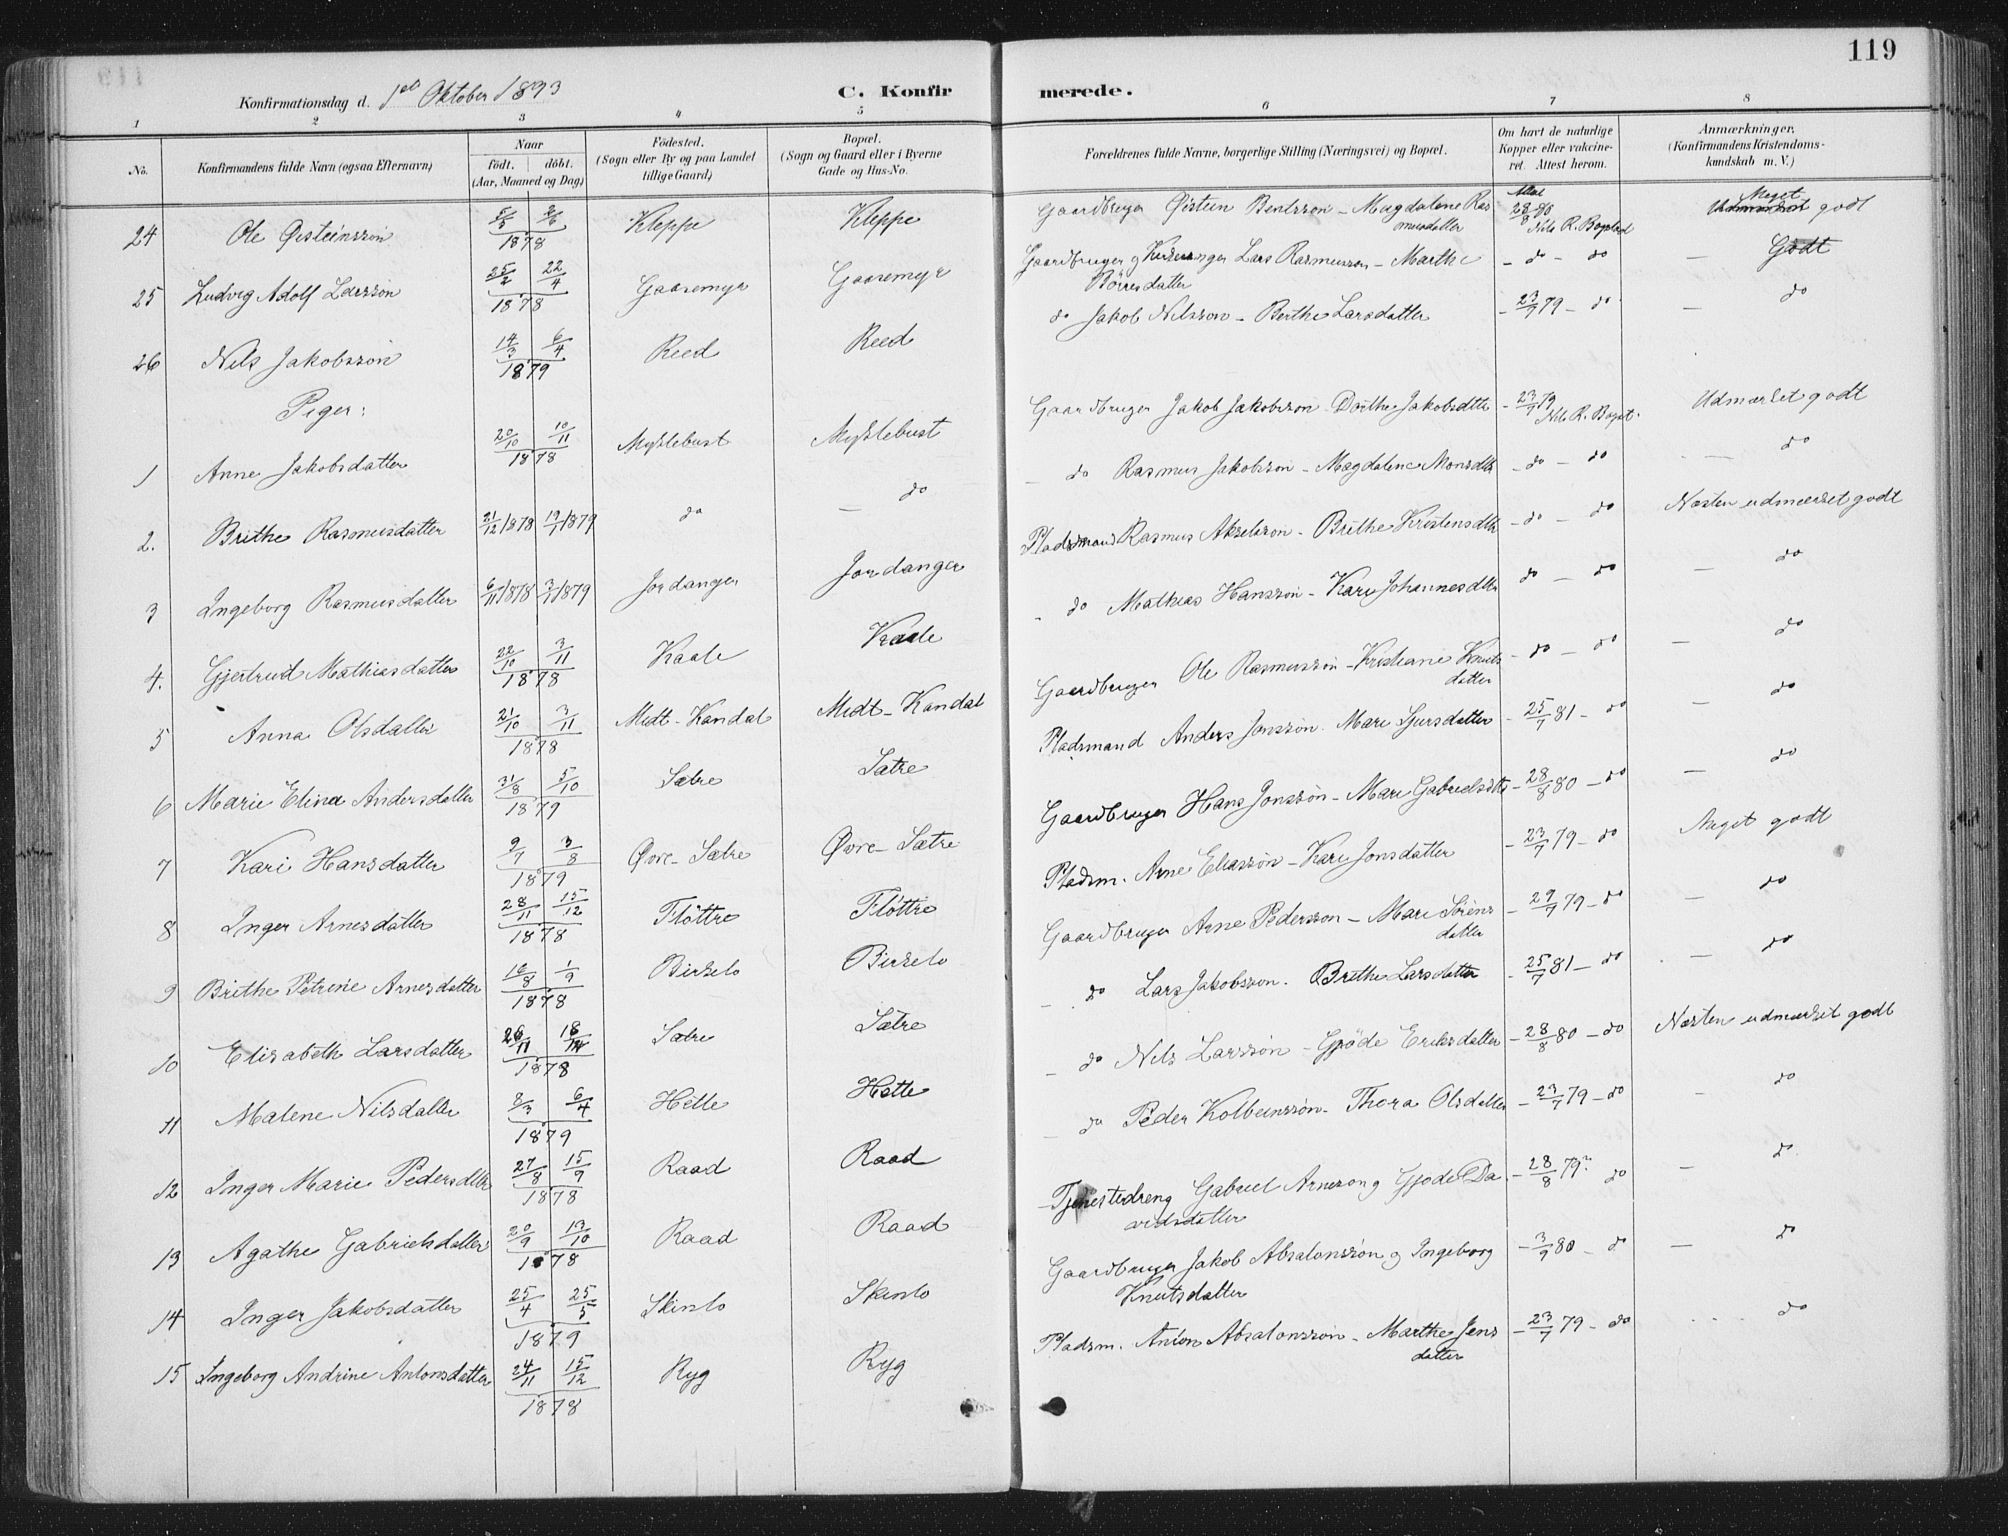 119
Konfirmationsdag d. 1ste Oktober 1893 C. Konfir merede.
1 2 3 4 5 6 7 8
No. Konfirmandens fulde Navn (ogsaa Efternavn) Naar födt. döbt. (Aar, Maaned og Dag) Födested. (Sogn eller By og paa Landet tillige Gaard) Bopæl. (Sogn og Gaard eller i Byerne Gade og Hus-No. Forældrenes fulde Navne, borgerlige Stilling (Næringsvei) og Bopæl. Om havt de naturlige Kopper eller vakcineret. Attest herom. Anmærkninger. (Konfirmandens Kristendomskundskab m. V.)
24 Ole Øisteinssøn 5/5 2/6 1878 Kleppe Kleppe Gaardbruger Øistein Bentssøn - Magdalene Rasmusdatter 28/8 80 Nils R. Bogstad Meget godt
25 Ludvig Adolf Larssøn 25/2 22/4 1878 Gaasemyr Gaasemyr Gaardbruger og Lars Rasmussøn - Marthe Børresdatter - do - do - Godt
26 Nils Jakobssøn 14/3 6/4 1879 Reed Reed do Jakob Nilssøn - Berthe Larsdatter - 23/7 79 - do - do
Piger:
1 Anne Jakobsdatter 20/10 10/11 1878 Myklebust Myklebust Gaardbruger Jakob Jakobssøn - Dorthe Jakobsdtr - 23/7 79 Nils R. Bogst. Udmærket godt
2. Brithe Rasmusdatter 21/12 1878 19/1 1879 do - do - do Rasmus Jakobssøn - Magdalene Monsdtr - do - do - do
3 Ingeborg Rasmusdatter 6/11 1878 3/1 1879 Jordanger Jordanger Pladsmand Rasmus Akselssøn - Brithe Kristensdtr - do - do Næsten udmærket godt
4. Gjertrud Mathiasdatter 22/10 3/11 1878 Kaale Kaale - do Mathias Hanssøn - Kari Johannesdtr do - do - do
5 Anna Olsdatter 21/10 3/11 1878 Midt-Kandal Midt-Kandal Gaardbruger Ole Rasmussøn - Kristiane Knutsdatter - do - do - do
6 Marie Elina Andersdatter 31/8 5/10 1879 Sætre Sætre Pladsmand Anders Jonssøn - Mari Sjursdatter - 25/7 81 - do - do
7 Kari Hansdatter 9/7 3/8 1879 Øvre-Sætre Øvre-Sætre Gaardbruger Hans Jonssøn - Mari Gabrielsdtr - 28/8 80 - do - do
8 Inger Arnesdatter 28/11 15/12 1878 Fløttre Fløttre Pladsm. Arne Eliassøn - Kari Jonsdatter - 23/7 79 - do Meget godt
9 Brithe Petrine Arnesdatter 16/8 1/9 1878 Birkelo Birkelo Gaardbruger Arne Pederssøn - Mari Sørensdatter - 29/7 79 - do - do
10 Elisabeth Larsdatter 26/11 18/12 1878 Sætre Sætre - do Lars Jakobssøn - Brithe Larsdatter - 25/7 81 - do - do
11 Malene Nilsdatter 8/3 6/4 1879 Hetle Hetle - do Nils Larssøn - Gjøde Eriksdatter - 28/8 80 - do Næsten udmærket godt
12 Inger Marie Pedersdtr 27/8 15/9 1878 Raad Raad - do Peder Kolbeinssøn - Thora Olsdatter - 23/7 79 - do - do
13 Agathe Gabrielsdatter 20/9 13/10 1878 Raad Raad Tjenestedreng Gabriel Arnessøn og Gjøde Davidsdatter - 28/8 79 do - do
14 Inger Jakobsdatter 25/4 25/5 1879 Skinlo Skinlo Gaardbruger Jakob Absalonssøn og Ingeborg Knutsdatter - 3/9 80 - do - do
15 Ingeborg Andrine Antonsdatter 24/11 15/12 1878 Ryg Ryg Pladsm. Anton Absalonssøn - Marthe Jensdatter - 23/7 79 - do do